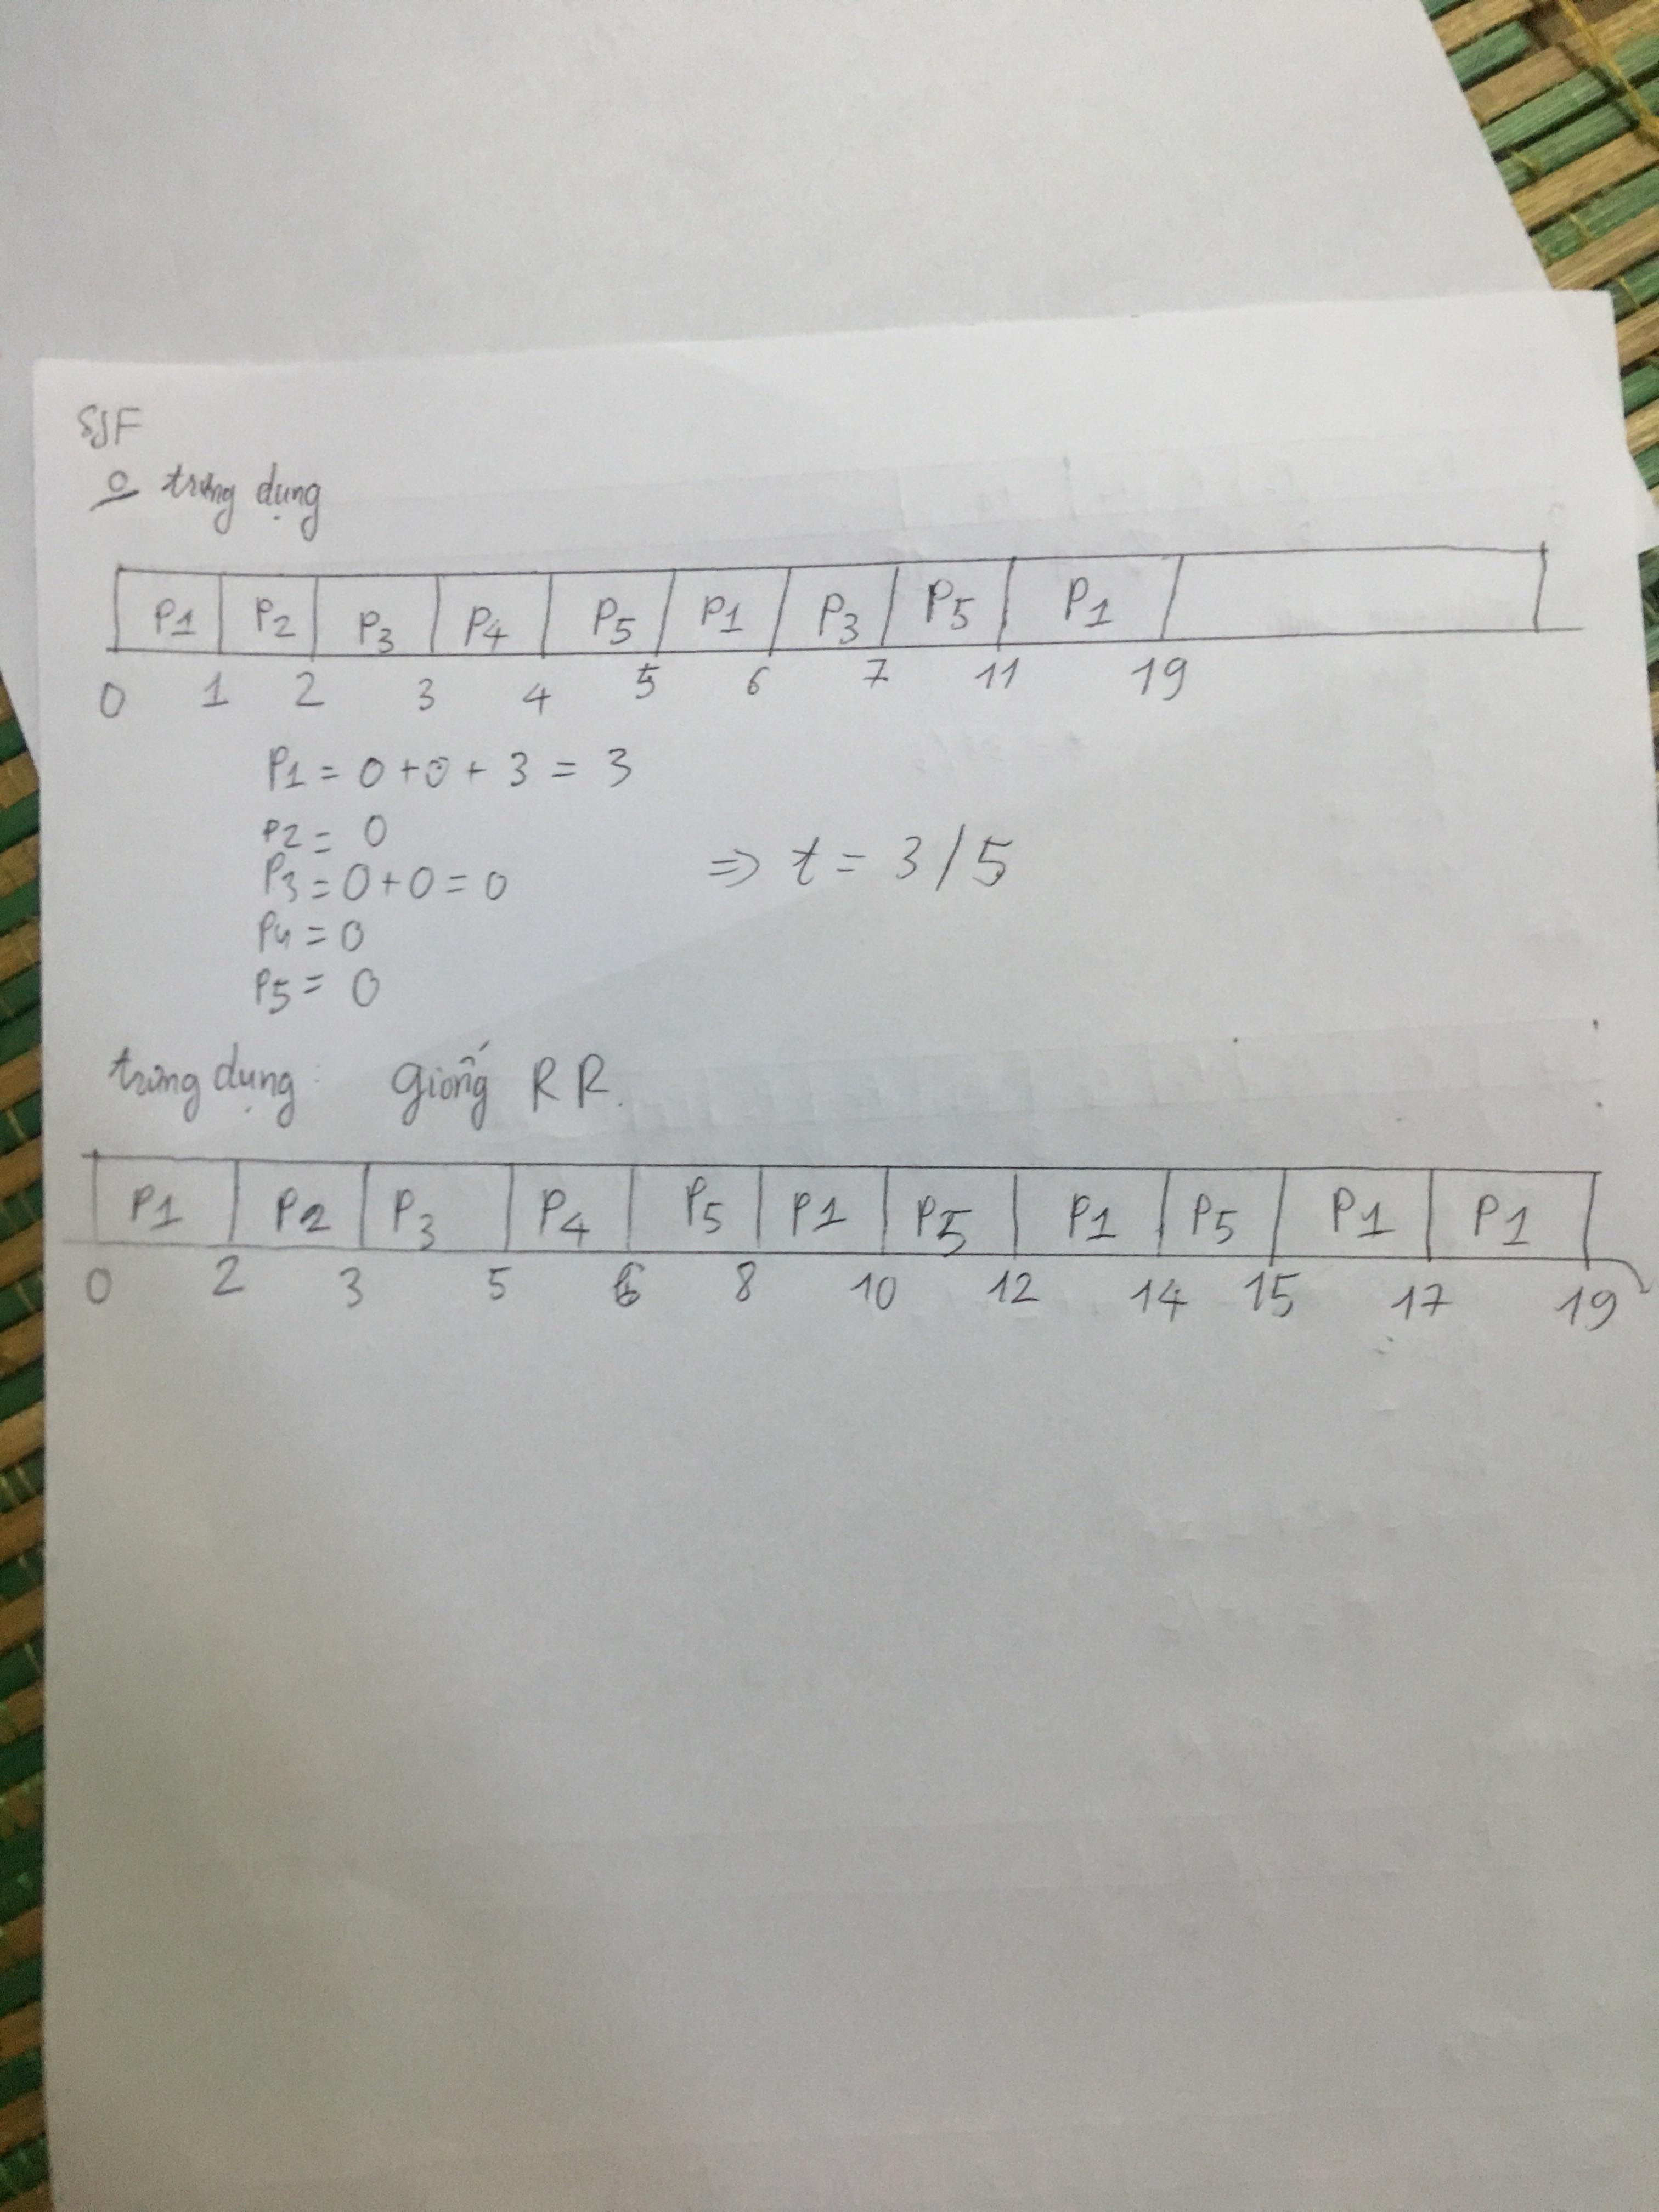 SJF
o trưng dụng
P1 P2 P3 P4 P5 P1 P3 P5 P1
0 1 2 3 4 5 6 7 11 19
P1 = 0 + 0 + 3 = 3
P2 = 0
P3 = 0 + 0 = 0
⇒ t = 3/5
P4 = 0
P5 = 0
trưng dụng: Giống RR.
P1 P2 P3 P4 P5 P1 P5 P1 P5 P1 P1
0 2 3 5 6 8 10 12 14 15 17 19